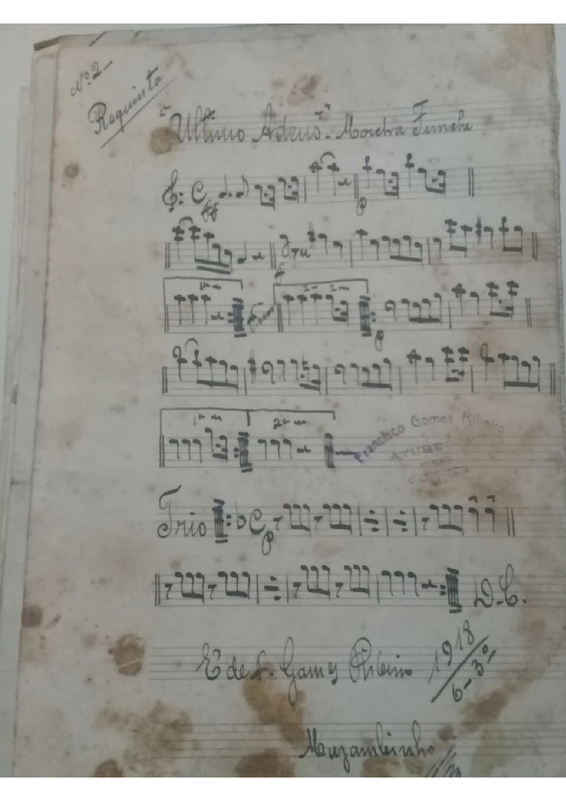 Nº 2
Requinta
"Ultimo Adeus" - Marcha Funebe
C
ff
p
1ª
Fim
2ª
p
1ª
2ª
Francisco Gomes Ribeiro
Trio C
p
D.C.
E' de F. Gomes Ribeiro
1918
6-3º
Muzambinho